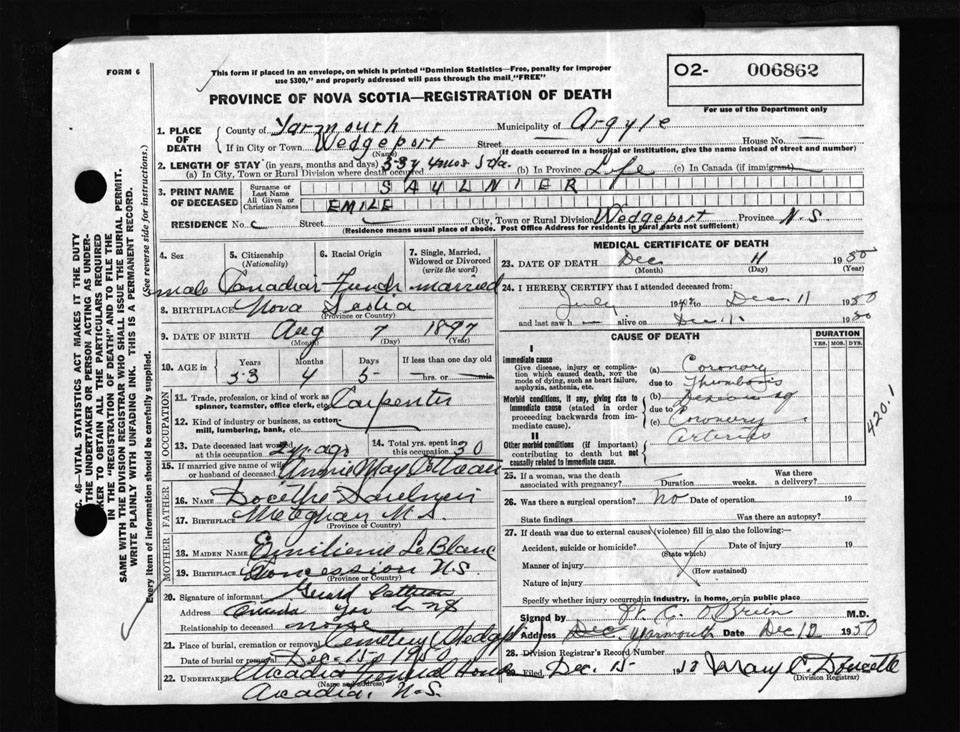 FORM 6
This form if placed in an envelope, on which is printed "Dominion Statistics—Free, penalty for improper
use $300," and properly addressed will pass through the mail "FREE"
O2- 006862
For use of the Department only
PROVINCE OF NOVA SCOTIA—REGISTRATION OF DEATH
1. PLACE OF DEATH
County of Yarmouth Municipality of Argyle
If in City or Town Wedgeport Street House No. —
(Name) (If death occurred in a hospital or institution, give the name instead of street and number)
2. LENGTH OF STAY (in years, months and days) 53 y 4 mos 5 da.
(a) In City, Town or Rural Division where death occurred (b) In Province Life (c) In Canada (if immigrant)
3. PRINT NAME OF DECEASED
Surname or Last Name SAULNIER
All Given or Christian Names EMILE
RESIDENCE No. Street City, Town or Rural Division Wedgeport Province N.S.
(Residence means usual place of abode. Post Office Address for residents in rural parts not sufficient)
4. Sex 5. Citizenship (Nationality) 6. Racial Origin 7. Single, Married, Widowed or Divorced (write the word)
male Canadian French married
8. BIRTHPLACE Nova Scotia
(Province or Country)
9. DATE OF BIRTH Aug 7 1897
(Month) (Day) (Year)
10. AGE in Years Months Days If less than one day old
53 4 5 —hrs. or —min.
11. Trade, profession, or kind of work as spinner, teamster, office clerk, etc. Carpenter
12. Kind of industry or business, as cotton-mill, lumbering, bank, etc.
13. Date deceased last worked at this occupation 2 yr ago
14. Total yrs. spent in this occupation 30
15. If married give name of wife or husband of deceased Annie May
FATHER
16. NAME
17. BIRTHPLACE Meteghan N.S.
(Province or Country)
MOTHER
18. MAIDEN NAME LeBlanc
19. BIRTHPLACE Concession N.S.
(Province or Country)
20. Signature of informant
Address Yar N.S
Relationship to deceased
21. Place of burial, cremation or removal Cemetery Wedgept
Date of burial or removal Dec. 15 1950
22. Undertaker Acadia Funeral Home
(Name and Address)
Arcadia, N.S.
MEDICAL CERTIFICATE OF DEATH
23. DATE OF DEATH Dec 11 1950
(Month) (Day) (Year)
24. I HEREBY CERTIFY that I attended deceased from:
July 19 to Dec 11 1950
and last saw h — alive on Dec 11 1950
CAUSE OF DEATH
DURATION
YRS. MOS. DYS.
I
Immediate cause
Give disease, injury or complication which caused death, not the mode of dying, such as heart failure, asphyxia, asthenia, etc.
(a) Coronary
due to Thrombosis
Morbid conditions, if any, giving rise to immediate cause (stated in order proceeding backwards from immediate cause).
(b)
due to
(c) Coronary
Arteries
420.1
II
Other morbid conditions (if important) contributing to death but not causally related to immediate cause.
25. If a woman, was the death associated with pregnancy? Duration weeks. Was there a delivery?
26. Was there a surgical operation? no Date of operation 19
State findings Was there an autopsy?
27. If death was due to external causes (violence) fill in also the following:—
Accident, suicide or homicide? Date of injury 19
(State which)
Manner of injury
(How sustained)
Nature of injury
Specify whether injury occurred in industry, in home, or in public place
Signed by O'Brien M.D.
Address Yarmouth Date Dec 12 1950
28. Division Registrar's Record Number
Filed Dec. 15 Mary C. Doucette
(Division Registrar)
SEC. 46—VITAL STATISTICS ACT MAKES IT THE DUTY
OF THE UNDERTAKER OR PERSON ACTING AS UNDER-
TAKER TO OBTAIN ALL THE PARTICULARS REQUIRED
IN THE "REGISTRATION OF DEATH" AND TO FILE THE
SAME WITH THE DIVISION REGISTRAR WHO SHALL ISSUE THE BURIAL PERMIT.
WRITE PLAINLY WITH UNFADING INK. THIS IS A PERMANENT RECORD.
Every item of information should be carefully supplied. (See reverse side for instructions.)